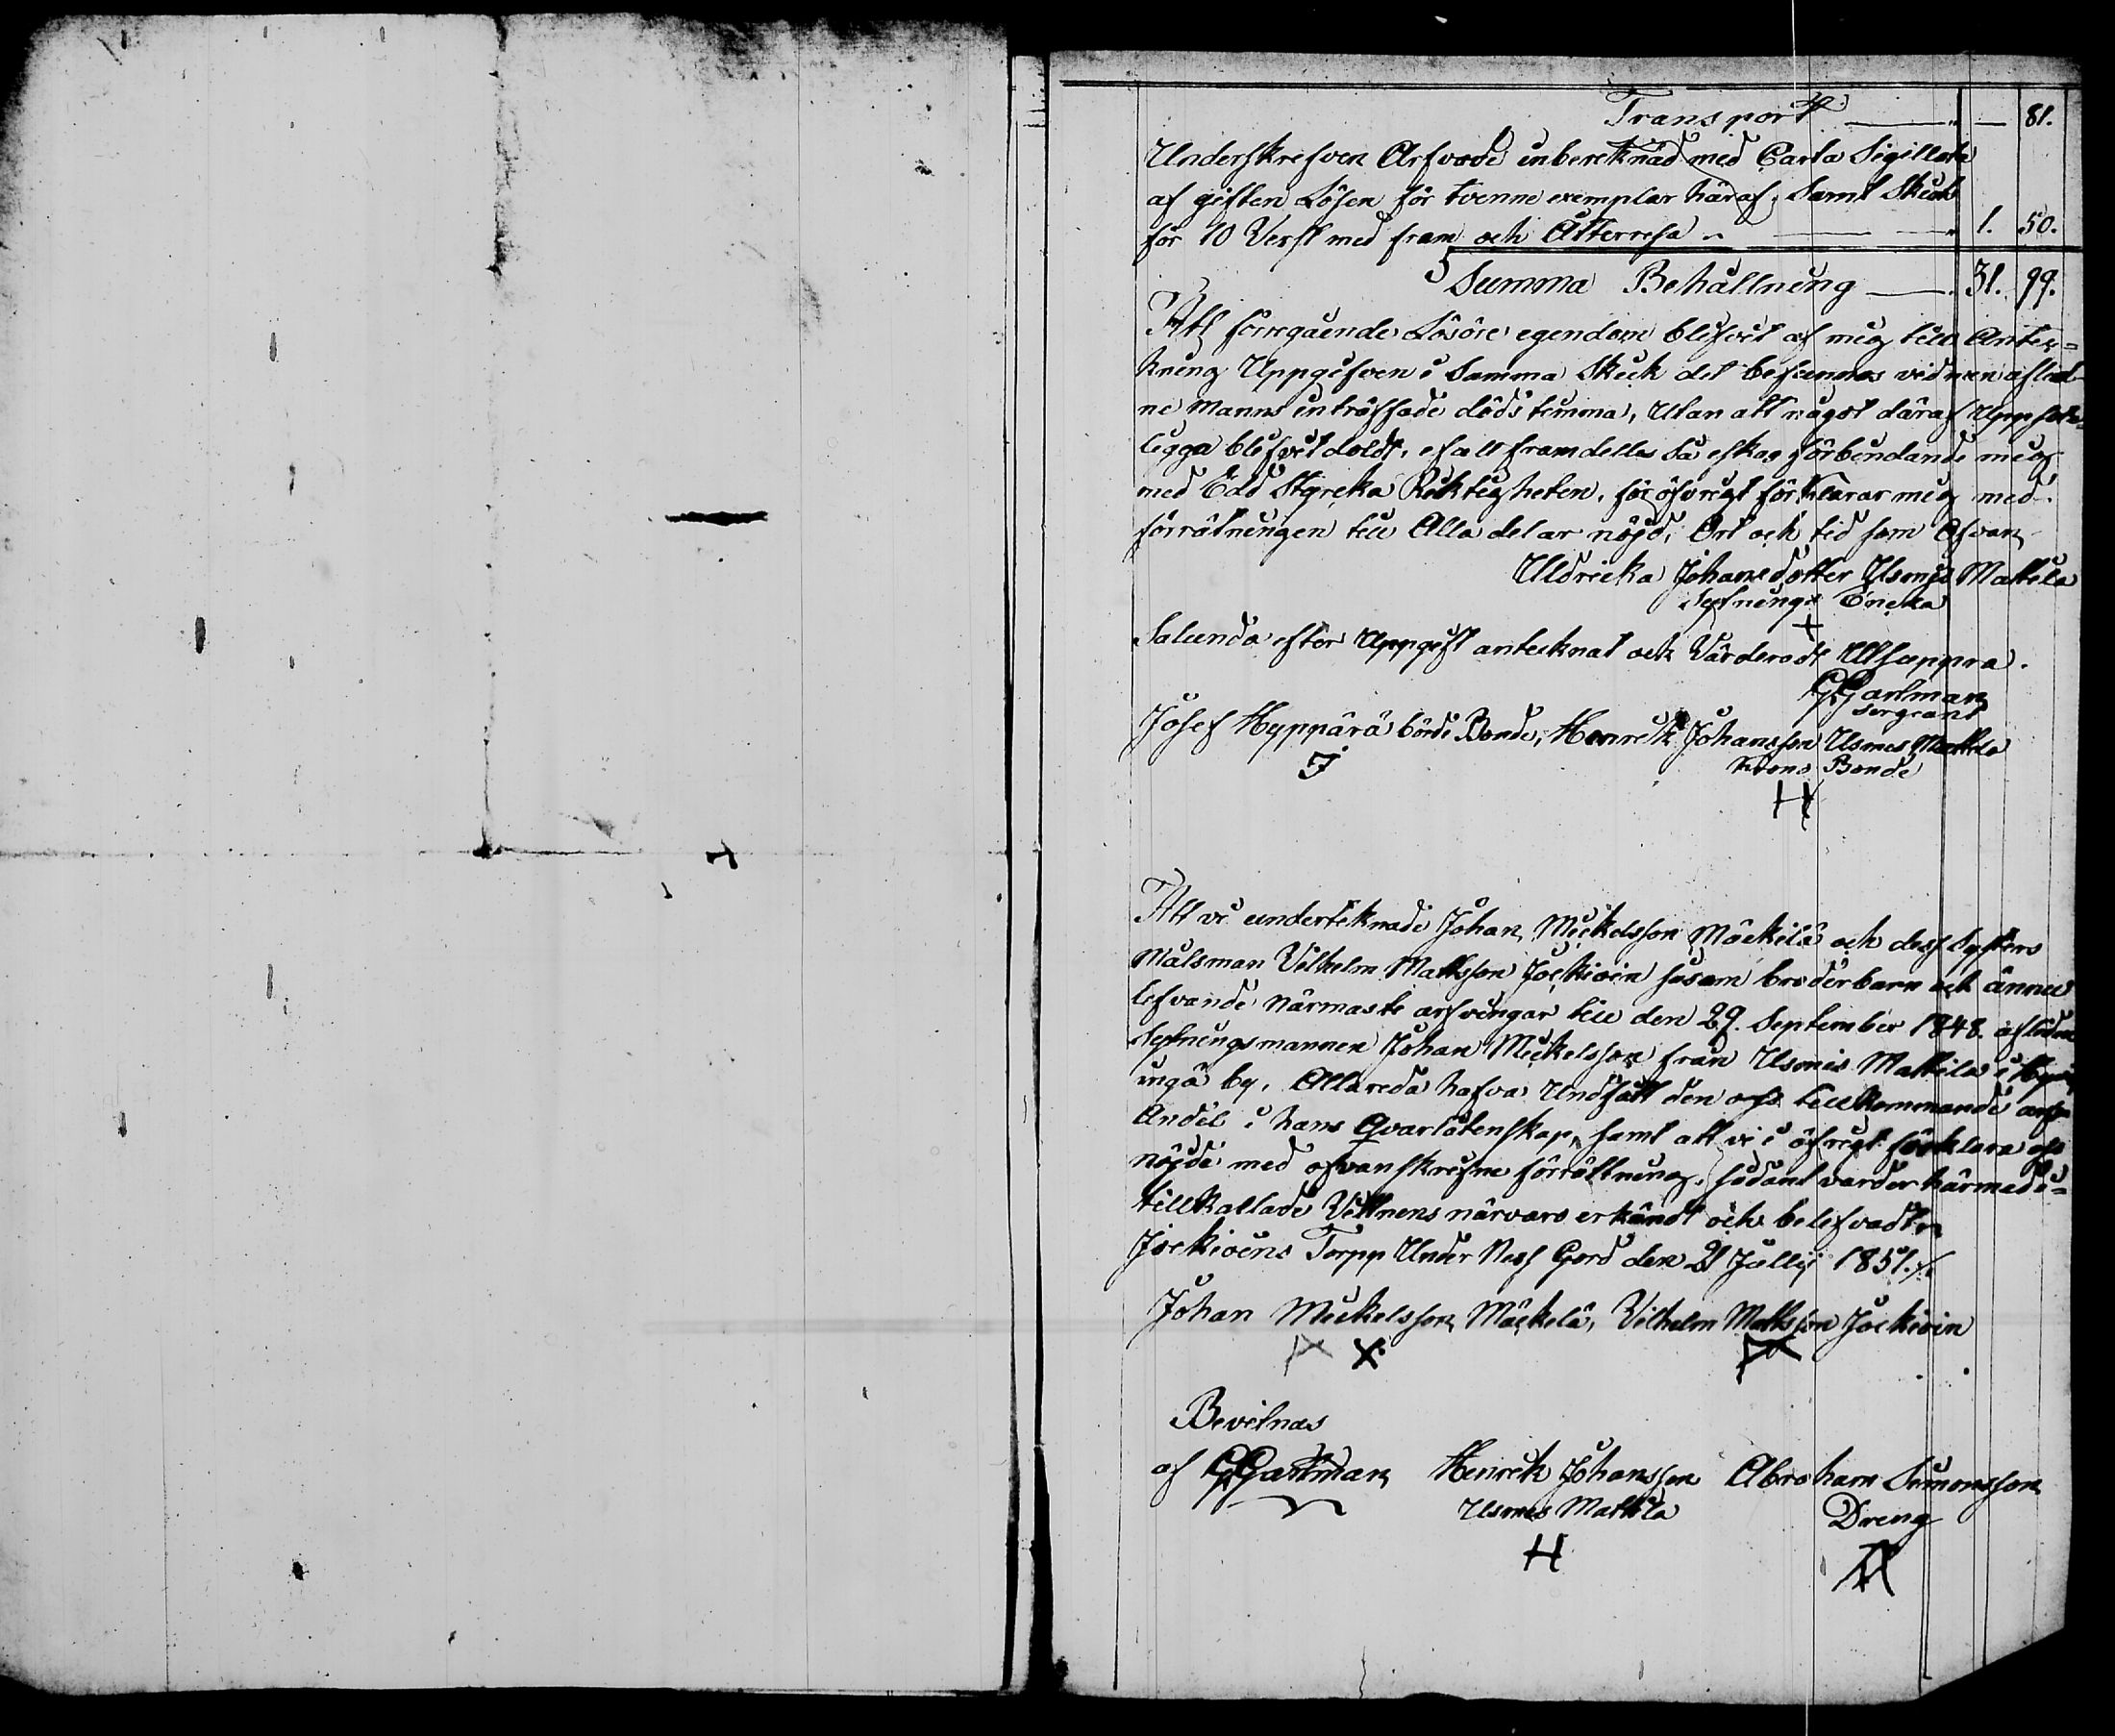 Transport — " — 81.
Underskrefven Arfvode inberektnad med Carta Sigillata
af giften Lösen för tvenne exemplar häraf, Samt Skuts
för 10 Verst med fram och Åtterresa " — " 1. 50.
Summa Behållning — 31. 99.
Att förregående Lösöre egendom blifvit af mig till Antek=
kning Uppgifven i Samma Skick det befannes vid min aflid-
ne Manns inträffade dödstimma, Utan att något däraf Uppsåt=
ligga blifvit doldt, ifall framdelles så eskas förbindande mig
med Edd Styrcka Ricktigheten, för öfvrigt förklarar mig med
förrätningen till Alla delar nöjd, Ort och tid som Ofvan
Uldricka Johansdotter Usmis Mattila
Sytnings Encka
+
Salunda efter Uppgift antecknat och Värderadt Utsuppra.
G Gartman
Sergeant
Josef Hyppärä börde Bonde, Henrick Johansson Usmis Mattila
J Krons Bonde
H
Att vi undertecknade Johan Mickelsson Mäckilä och dess Systers
Målsman Vilhelm Mattsson Jockioin såsom broderbarn och ännu
lefvande närmaste arfvingar till den 29. September 1848. aflidne
Sytningsmannen Johan Mickelsson från Usmis Mattila i
ingå by, Allareda hafva Undfått den oss tillkommande arfs
Andel i hans Qvarlåtenskap, samt att vi i öfrigt förklara oss
nöjde med ofvanskrifne förrättning, sådant varder härmed i=
tillkallade Vittnens närvaro erkändt och belefvadt "
Jockioins Torpp Under Ness Gord den 21 Jullij 1851./.
Johan Mickelsson Mäckelä, Vilhelm Mattsson Jockioin
X
Bevitnas
af G Gartman Henrick Johansson Abraham Simonsson
Usmis Mattila Dreng
H